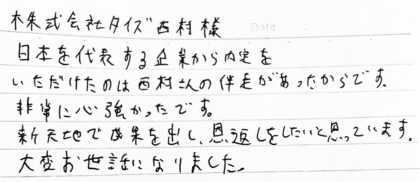 株式会社タイズ 西村様
日本を代表する企業から内定を
いただけたのは西村さんの伴走があったからです。
非常に心強かったです。
新天地で成果を出し、恩返しをしたいと思っています。
大変お世話になりました。